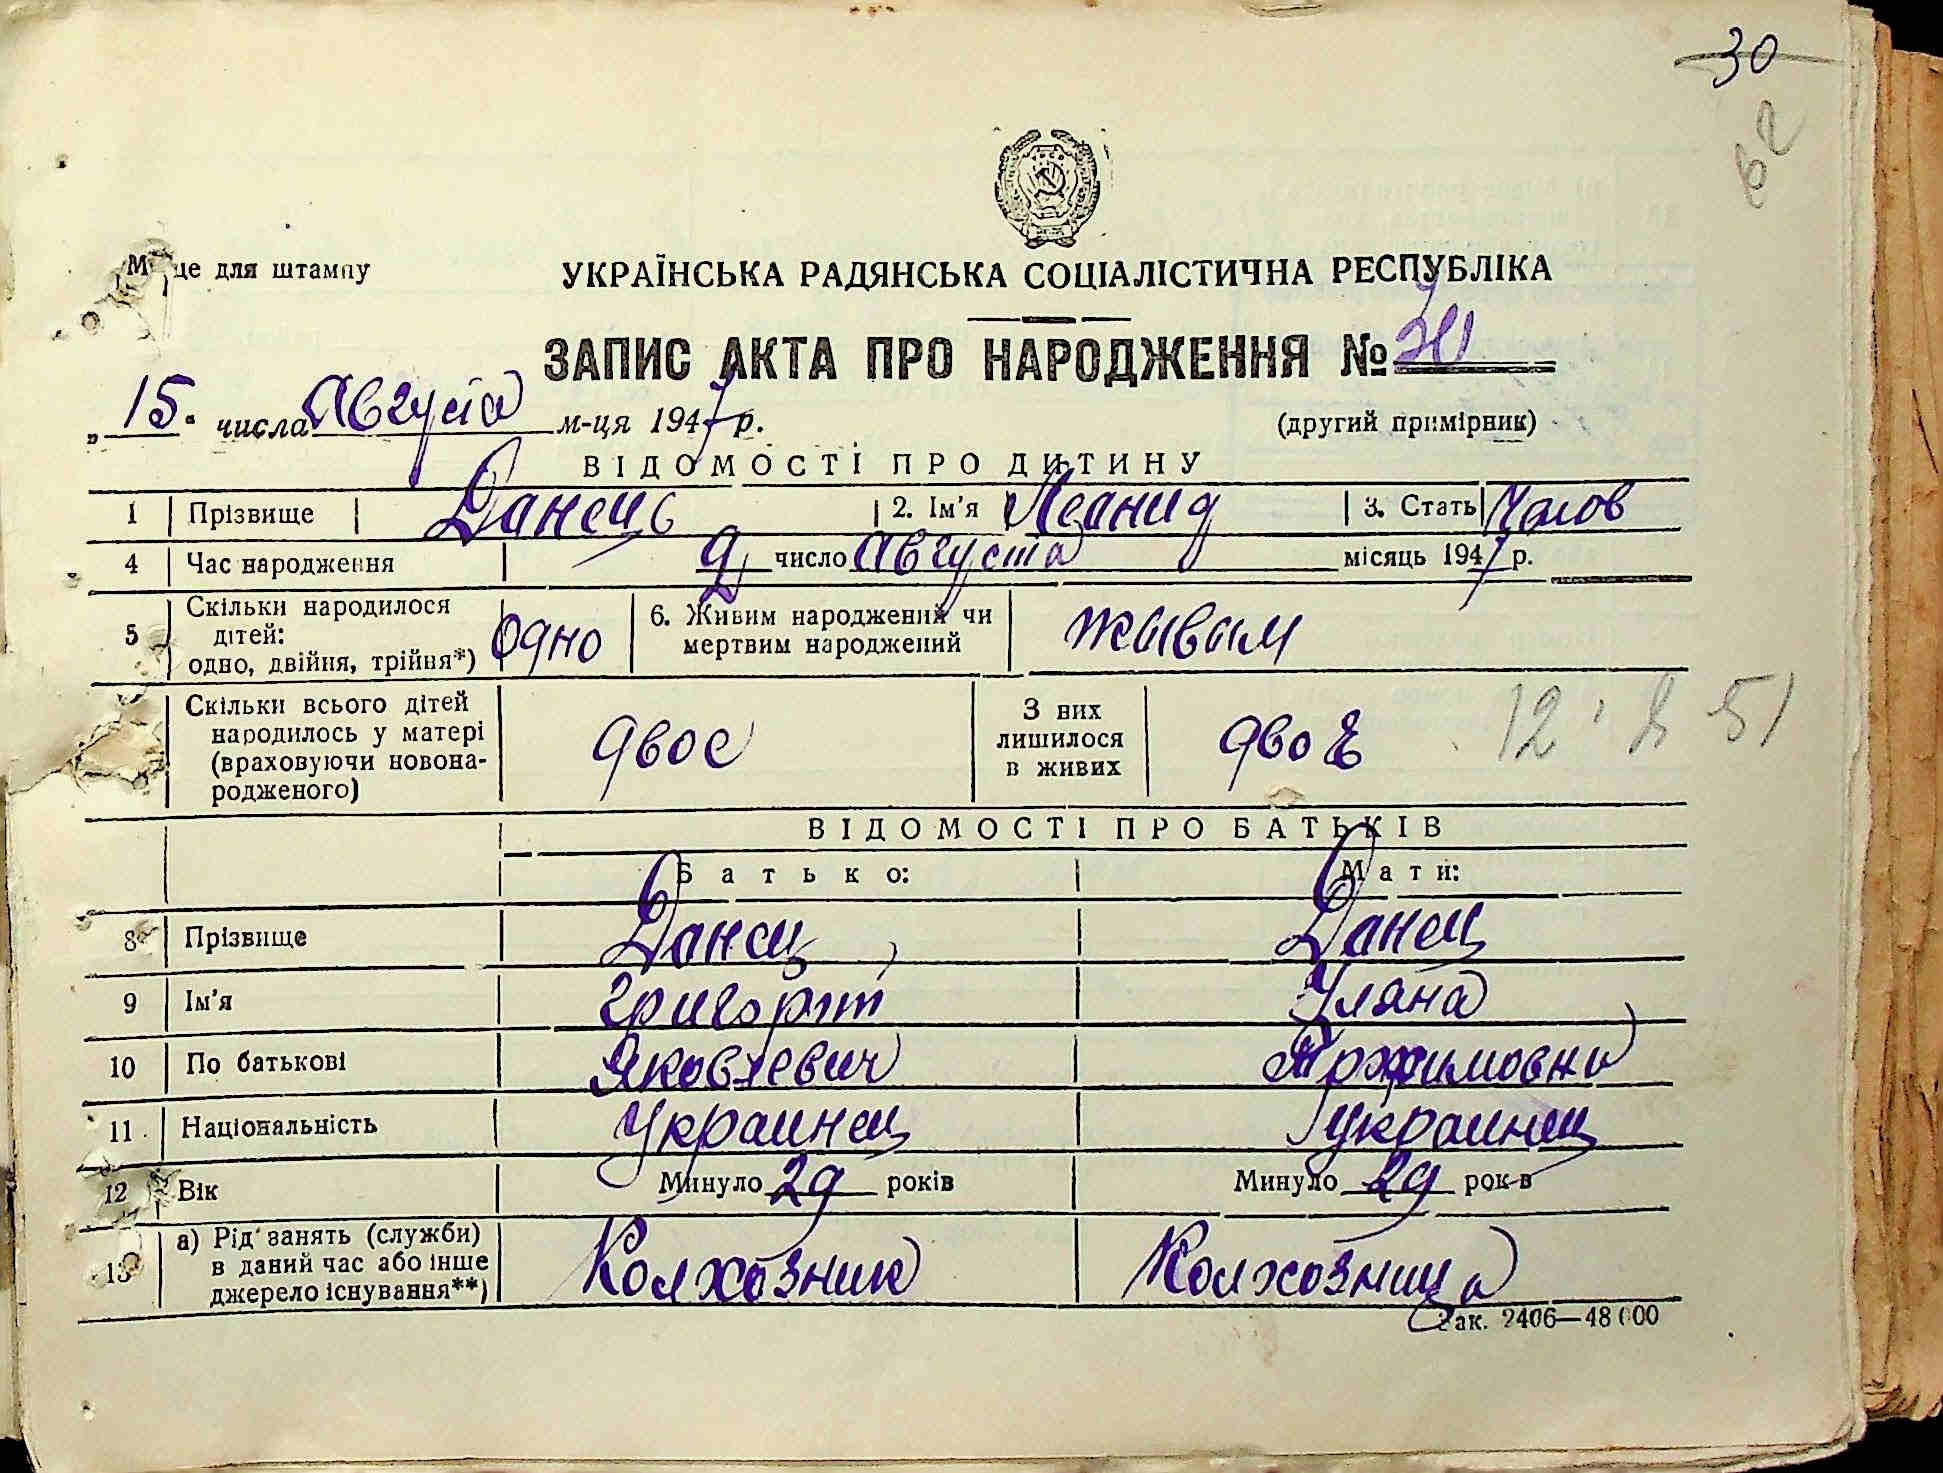 30
62
М це для штампу
УКРАЇНСЬКА РАДЯНСЬКА СОЦІАЛІСТИЧНА РЕСПУБЛІКА
ЗАПИС АКТА ПРО НАРОДЖЕННЯ №
„ 15 " числа Августа м-ця 1947 р.
(другий примірник)
ВІДОМОСТІ ПРО ДИТИНУ
1 Прізвище Данець 2. Ім'я Леанид 3. Стать
4 Час народження число Августа місяць 1947 р.
5 Скільки народилося дітей: одно, двійня, трійня*) Одно 6. Живим народжений чи мертвим народжений жывым
Скільки всього дітей народилось у матері (враховуючи новонародженого) двое З них лишилося в живих двоє
12 51
ВІДОМОСТІ ПРО БАТЬКІВ
Батько: Мати:
8 Прізвище Данец Данец
9 Ім'я Григорий Уляна
10 По батькові Яковлевич
11 Національність Украинец украинец
12 Вік Минуло 29 років Минуло 29 рок в
13 а) Рід занять (служби) в даний час або інше джерело існування**) Колхозник Колхозница
Зак. 2406—48 000